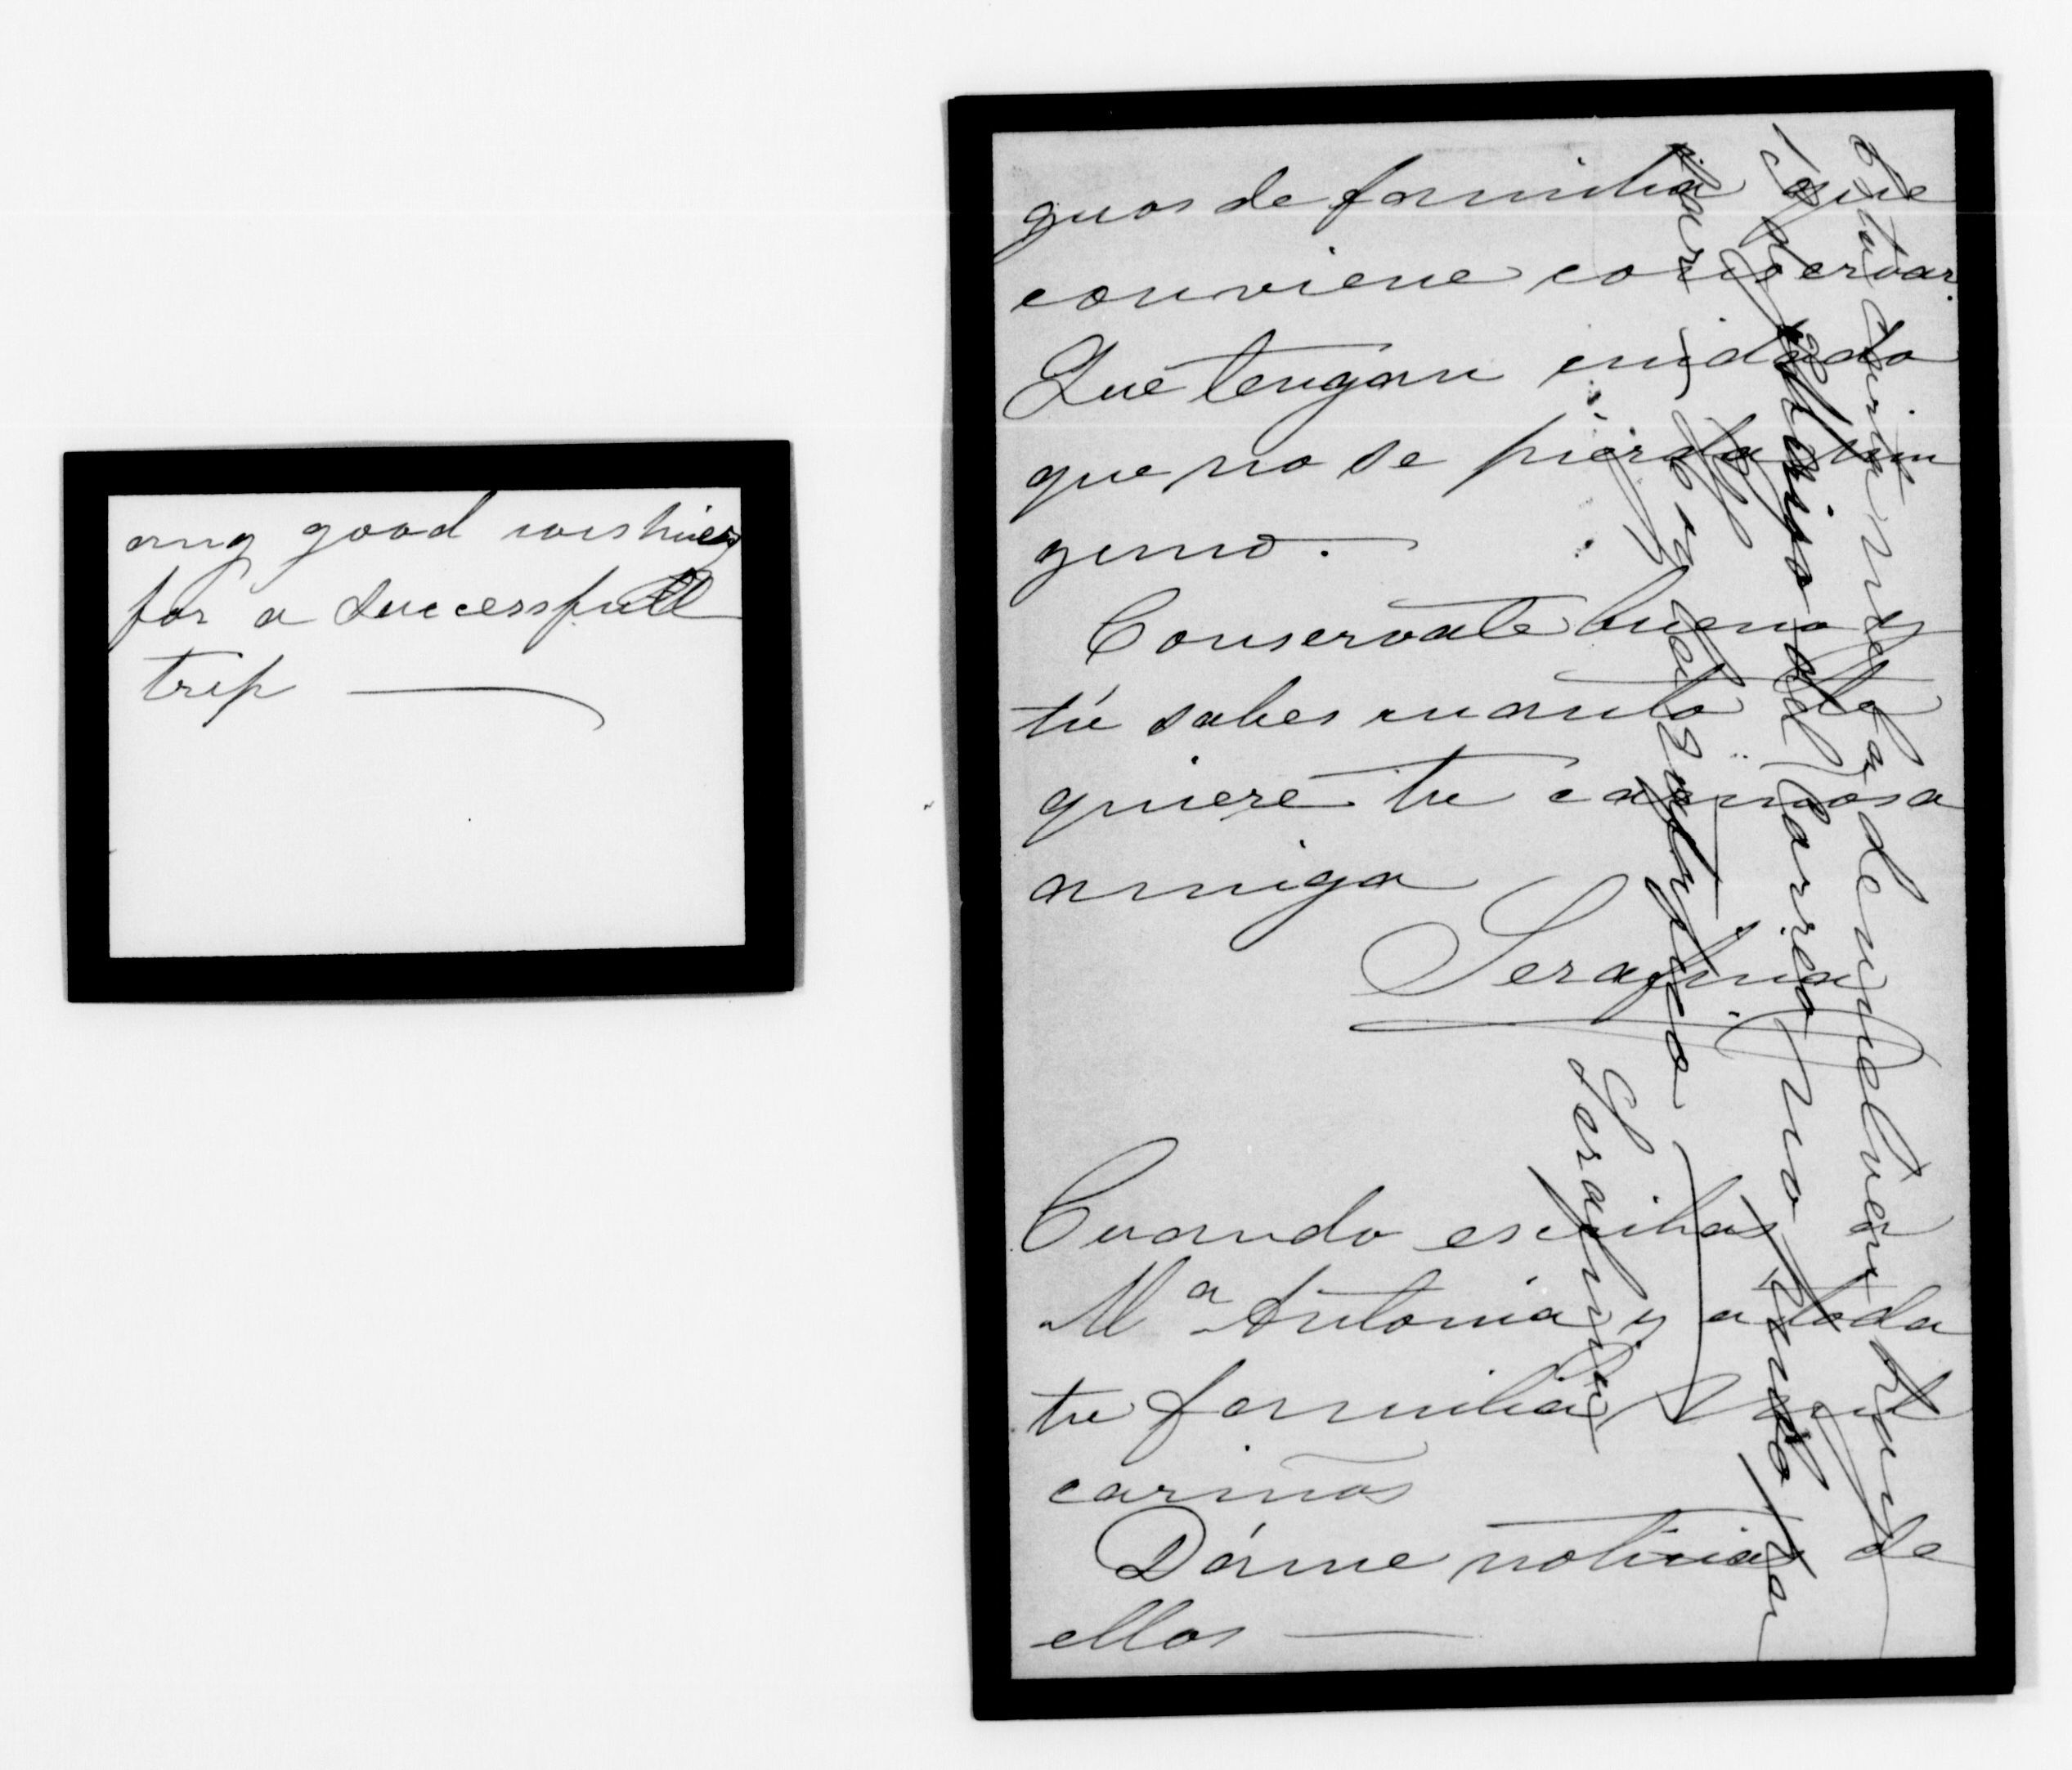 any good wishies
for a successfull
trip
guos de familia que
conviene conservar.
Que tengan cuidado
que no se pierda nin
guno.
Conservate bueno y
tú sabes cuanto te
quiere tu cariñosa
amiga
Serafina
Cuando escribas a
Mª Antonia y a toda
tu familia mil
cariños
Dáme noticias de
ellos
esta carita me la devuelven hoy
del Correo no pudo pa
sar
Serafina